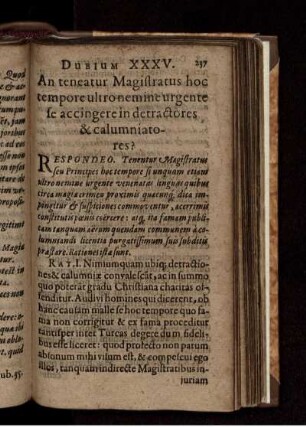 DUBIUM XXXV. 237
An teneatur Magistratus hoc
tempore ultro nemine urgente
se accingere in detractores
& calumniato-
res?
RESPONDEO. Tenentur Magistratus
seu Principes hoc tempore si unquam etiam
ultro nemine urgente venenatas linguas quibus
circa magiæ crimen proximis quacunq; dica im-
pingitur & suspitiones commoventur, acerrimis
constitutis pœnis coërcere: atq; ita famam publi-
cam tanquam aërem quendam communem à ca-
lumniandi licentia purgatissimum suis subditis
præstare. Rationes istæ sunt.
RAT. I. Nimium quam ubiq; detractio-
nes & calumniæ convalescũt, ac in immensum
quo poterat gradu Christiana charitas of-
fenditur. Audivi homines qui dicerent, ob
hanc causam malle se hoc tempore quo fa-
ma non corrigitur & ex fama proceditur
tantisper inter Turcas degere dum fideli-
bus esse liceret: quod profecto non parum
absonum mihi visum est, & compescui ego
illos, tanquam indirecte Magistratibus in-
juriam
Quod
ub. 55.